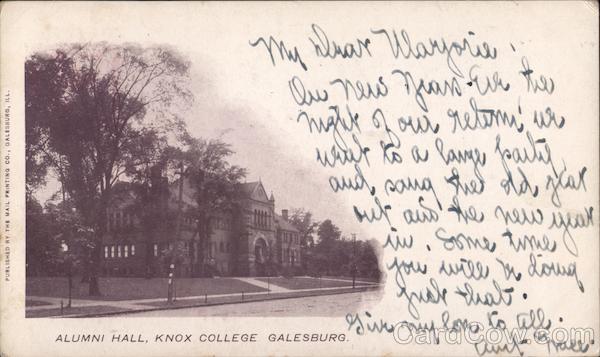 My Dear Marjorie,
On New Years Eve the
night of our return, we
went to a large party
and sang the old year
out and the new year
in. Some time
you will be doing
just that.
Give my love to all.
Aunt
ALUMNI HALL, KNOX COLLEGE GALESBURG.
PUBLISHED BY THE MAIL PRINTING CO., GALESBURG, ILL.
CardCow.com